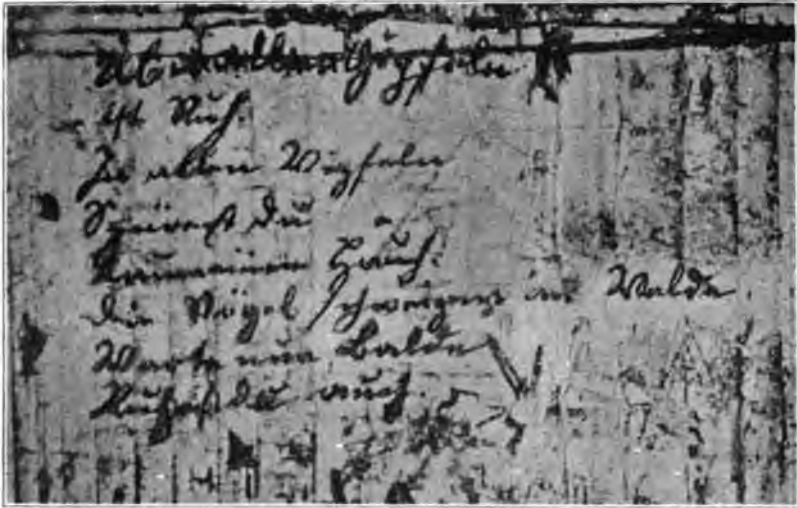 Über allen Gipfeln
ist Ruh.
In allen Wipfeln
Spürest Du
Kaum einen Hauch.
Die Vögel schweigen im Walde.
Warte nur, Balde
Ruhest du auch.